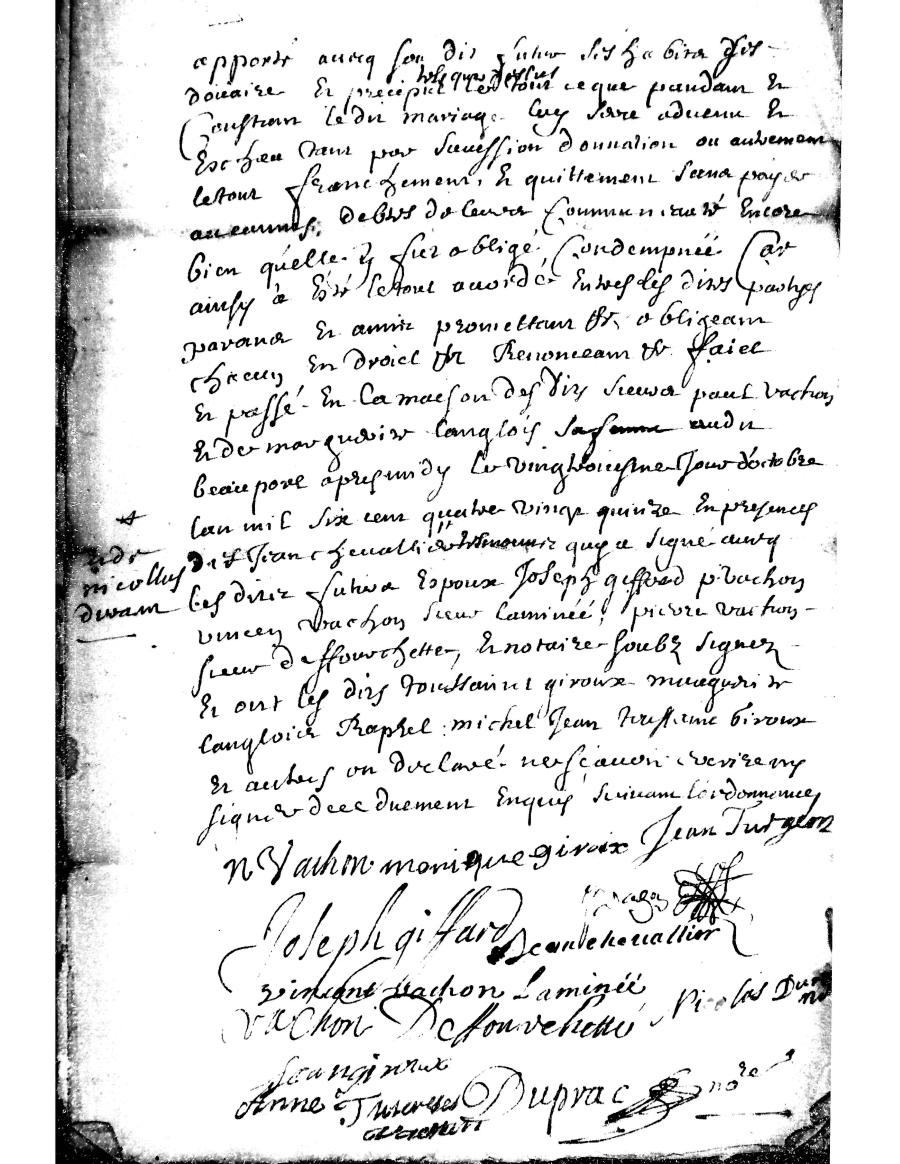 apporté avecq son dit futur ses habits ses
douaire Et préciput telsque dessus Le tout ce que pandant Et
Constant le dit mariage luy sera advenu Et
Escheu tant par sucession donnation ou autrement
le tout franchement, Et quittement sans payer
aucunnes, debtes de leur Communauté Encore
bien quelle y fut obligé Condempnée Car
ainsy à Esté le tout acordé Entres les dites partyes
promettant &c obligeant
chacun En droict &c Renonceant &c ffaict
Et passé En la maison des dits sieurs paul vachon
Et de margueritte Langlois sa femme audit
beauport apres midy le vingt jour d'octobre
Lan mil six cent quatre vingt quinze En presences
Et de
nicollas
durant
des Jean chevallier tesmoins quy a signé avecq
Les dits futurs Espoux Joseph giffard p vachon
vincent vachon sieur Laminée, pierre vachon
sieur Deffourchette, Et notaire soubz signez
Et ont les dits toussaint giroux marguerite
Langlois Raphel michel Jean toussaint Giroux
Et autres on declaré ne scavoir escrire ny
signer de ce duement Enquis suivant Lordonnance
n Vachon monique giroux Jean Turgeon
Joseph giffard
Jean chevallier
vincent vachon Laminéé
vachon Deffourchette Nicolas Durand
Jean giroux
Anne Therese
Duprac nore